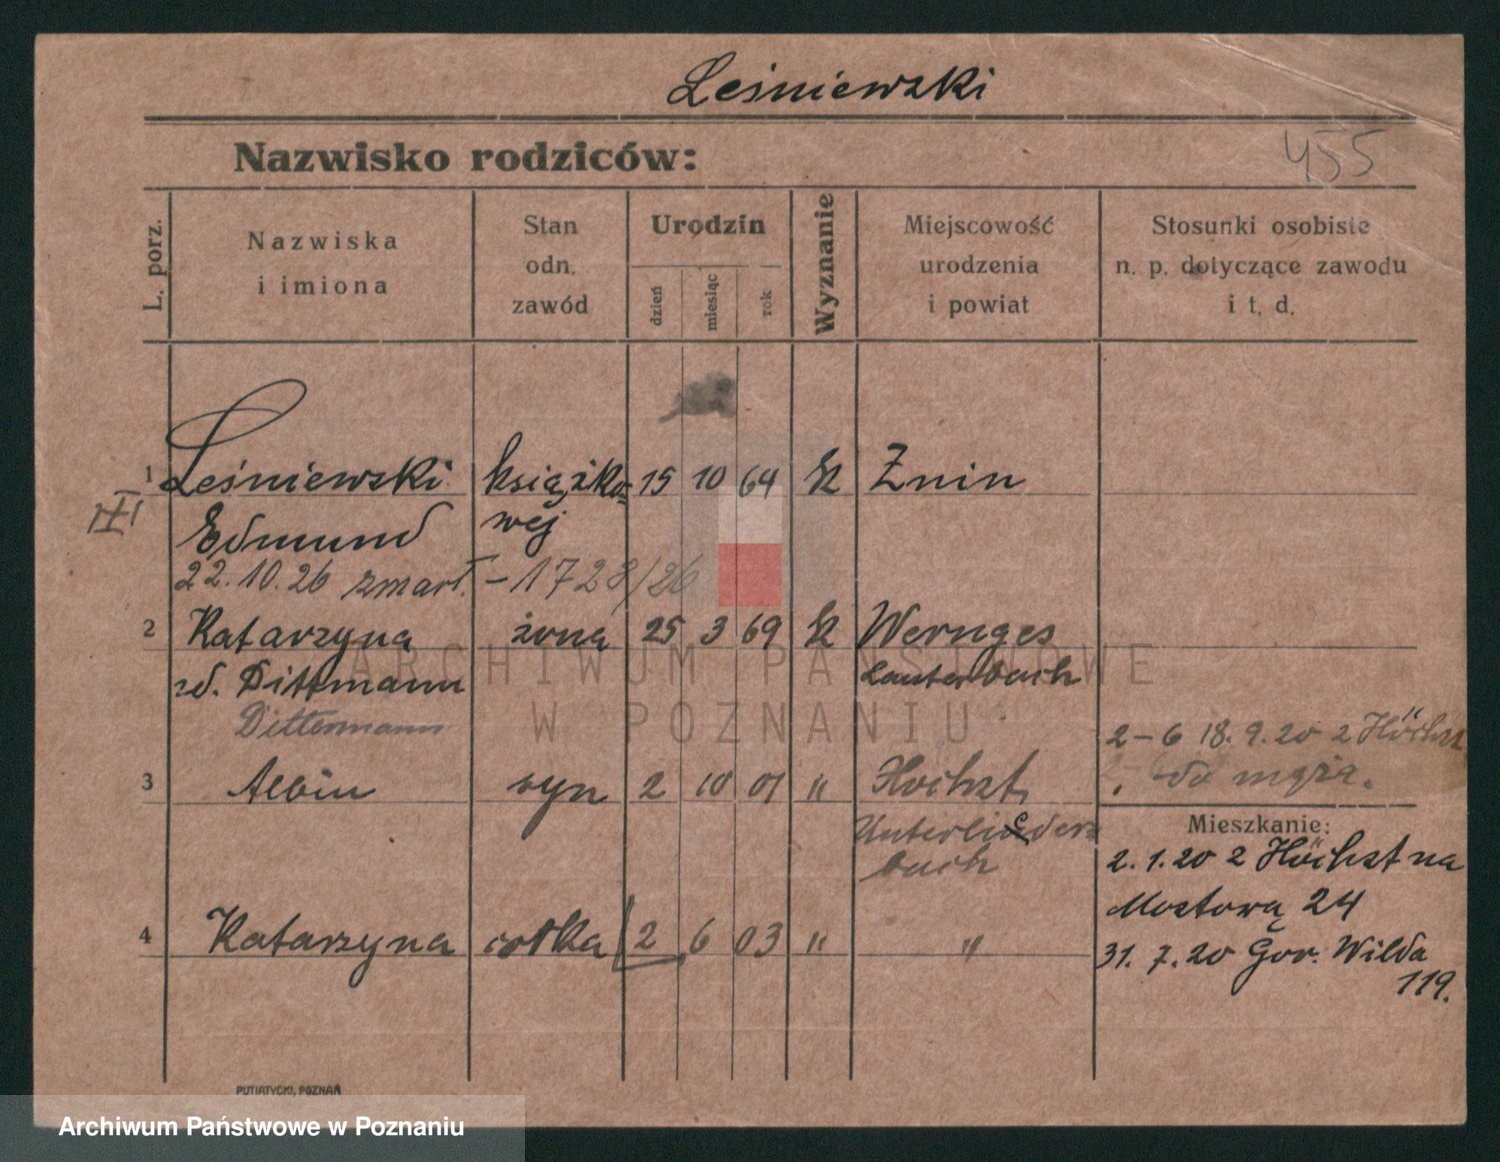 Leśniewski
Nazwisko rodziców:
455
L. porz.
Nazwiska
i imiona
Stan
odn.
zawód
Urodzin
dzień
miesiąc
rok
Wyznanie
Miejscowość
urodzenia
i powiat
Stosunki osobiste
n. p. dotyczące zawodu
i t. d.
1 Leśniewski książko= 15 10 64 k Żnin
Edmund wej
22.10.26 zmarł. - 1728/26
2 Katarzyna żona 25 3 69 k Wernges
zd. Dittmann Lauterbach
Dittermann
2-6 18.9.20 z Höchst
do męża.
3 Albin syn 2 10 01 " Hochst
Unterliederz
bach
Mieszkanie:
2.1.20 z Höchst na
Mostową 24
4 Katarzyna córka 2 6 03 " "
31.7.20 Gór. Wilda
119.
PUTIATYCKI, POZNAŃ
ARCHIWUM PAŃSTWOWE
W POZNANIU
Archiwum Państwowe w Poznaniu